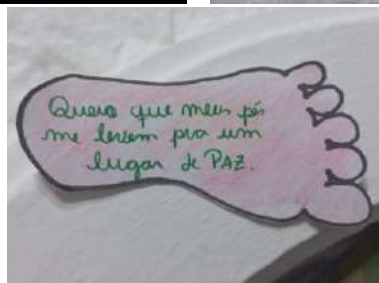 Quero que meus pés
me levem pra um
lugar de PAZ.